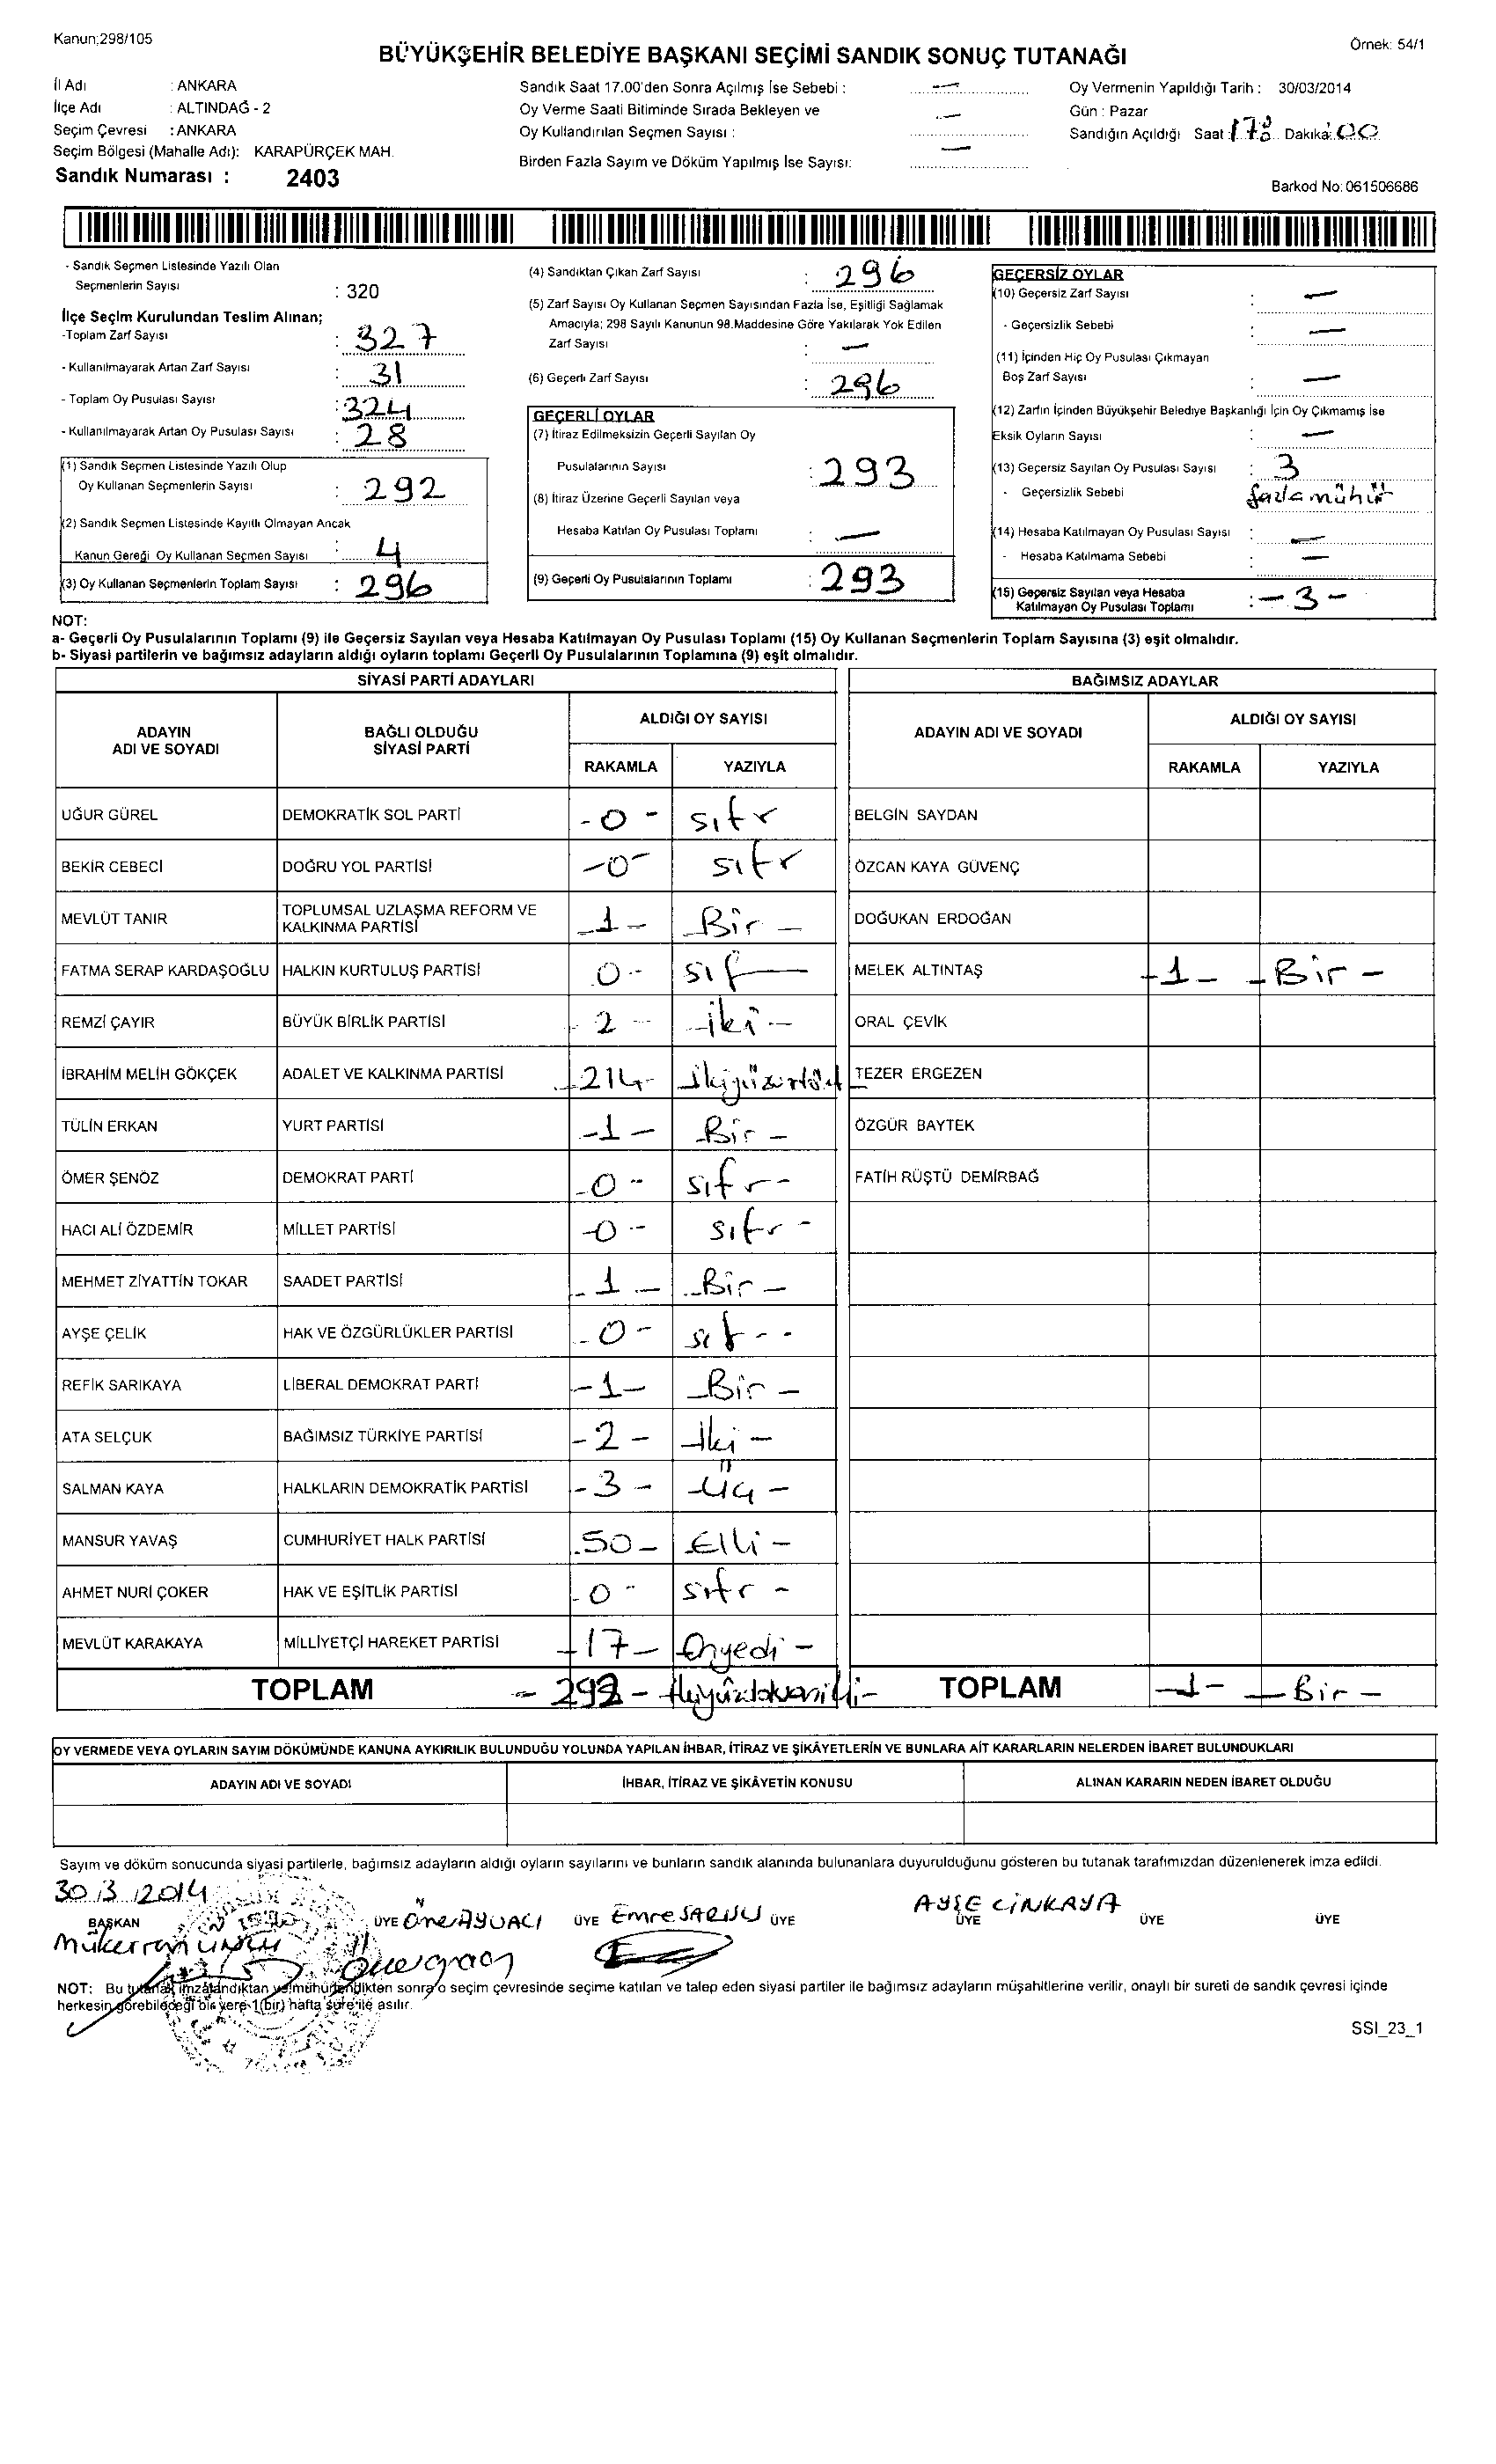 Kanun;298/105
Örnek: 54/1
BÜYÜKŞEHİR BELEDİYE BAŞKANI SEÇİMİ SANDIK SONUÇ TUTANAĞI
İl Adı : ANKARA
İlçe Adı : ALTINDAĞ - 2
Seçim Çevresi : ANKARA
Seçim Bölgesi (Mahalle Adı): KARAPÜRÇEK MAH.
Sandık Numarası : 2403
Sandık Saat 17.00'den Sonra Açılmış İse Sebebi : —
Oy Verme Saati Bitiminde Sırada Bekleyen ve
Oy Kullandırılan Seçmen Sayısı : —
Birden Fazla Sayım ve Döküm Yapılmış İse Sayısı: —
Oy Vermenin Yapıldığı Tarih : 30/03/2014
Gün : Pazar
Sandığın Açıldığı Saat : Dakika: 00
Barkod No: 061506686
- Sandık Seçmen Listesinde Yazılı Olan
Seçmenlerin Sayısı : 320
İlçe Seçim Kurulundan Teslim Alınan;
-Toplam Zarf Sayısı : 327
- Kullanılmayarak Artan Zarf Sayısı : 31
- Toplam Oy Pusulası Sayısı : 324
- Kullanılmayarak Artan Oy Pusulası Sayısı : 28
(1) Sandık Seçmen Listesinde Yazılı Olup
Oy Kullanan Seçmenlerin Sayısı : 292
(2) Sandık Seçmen Listesinde Kayıtlı Olmayan Ancak
Kanun Gereği Oy Kullanan Seçmen Sayısı : 4
(3) Oy Kullanan Seçmenlerin Toplam Sayısı : 296
(4) Sandıktan Çıkan Zarf Sayısı : 296
(5) Zarf Sayısı Oy Kullanan Seçmen Sayısından Fazla İse, Eşitliği Sağlamak
Amacıyla; 298 Sayılı Kanunun 98.Maddesine Göre Yakılarak Yok Edilen
Zarf Sayısı : —
(6) Geçerli Zarf Sayısı : 296
GEÇERLİ OYLAR
(7) İtiraz Edilmeksizin Geçerli Sayılan Oy
Pusulalarının Sayısı : 293
(8) İtiraz Üzerine Geçerli Sayılan veya
Hesaba Katılan Oy Pusulası Toplamı : —
(9) Geçerli Oy Pusulalarının Toplamı : 293
GEÇERSİZ OYLAR
(10) Geçersiz Zarf Sayısı : —
- Geçersizlik Sebebi : —
(11) İçinden Hiç Oy Pusulası Çıkmayan
Boş Zarf Sayısı : —
(12) Zarfın İçinden Büyükşehir Belediye Başkanlığı İçin Oy Çıkmamış İse
Eksik Oyların Sayısı : —
(13) Geçersiz Sayılan Oy Pusulası Sayısı : 3
- Geçersizlik Sebebi fazla mühür
(14) Hesaba Katılmayan Oy Pusulası Sayısı : —
- Hesaba Katılmama Sebebi : —
(15) Geçersiz Sayılan veya Hesaba
Katılmayan Oy Pusulası Toplamı : - 3 -
NOT:
a- Geçerli Oy Pusulalarının Toplamı (9) ile Geçersiz Sayılan veya Hesaba Katılmayan Oy Pusulası Toplamı (15) Oy Kullanan Seçmenlerin Toplam Sayısına (3) eşit olmalıdır.
b- Siyasi partilerin ve bağımsız adayların aldığı oyların toplamı Geçerli Oy Pusulalarının Toplamına (9) eşit olmalıdır.
SİYASİ PARTİ ADAYLARI
BAĞIMSIZ ADAYLAR
ADAYIN ADI VE SOYADI
BAĞLI OLDUĞU SİYASİ PARTİ
ALDIĞI OY SAYISI
RAKAMLA YAZIYLA
ADAYIN ADI VE SOYADI
ALDIĞI OY SAYISI
RAKAMLA YAZIYLA
UĞUR GÜREL DEMOKRATİK SOL PARTİ - 0 - sıfr BELGİN SAYDAN
BEKİR CEBECİ DOĞRU YOL PARTİSİ - 0 - sıfr ÖZCAN KAYA GÜVENÇ
MEVLÜT TANIR TOPLUMSAL UZLAŞMA REFORM VE KALKINMA PARTİSİ - 1 - - Bir - DOĞUKAN ERDOĞAN
FATMA SERAP KARDAŞOĞLU HALKIN KURTULUŞ PARTİSİ 0 - sıf MELEK ALTINTAŞ - 1 - - Bir -
REMZİ ÇAYIR BÜYÜK BİRLİK PARTİSİ - 2 - - iki - ORAL ÇEVİK
İBRAHİM MELİH GÖKÇEK ADALET VE KALKINMA PARTİSİ - 214 - TEZER ERGEZEN
TÜLİN ERKAN YURT PARTİSİ - 1 - - Bir - ÖZGÜR BAYTEK
ÖMER ŞENÖZ DEMOKRAT PARTİ - 0 - sıfr - FATİH RÜŞTÜ DEMİRBAĞ
HACI ALİ ÖZDEMİR MİLLET PARTİSİ - 0 - sıfr -
MEHMET ZİYATTİN TOKAR SAADET PARTİSİ - 1 - - Bir -
AYŞE ÇELİK HAK VE ÖZGÜRLÜKLER PARTİSİ - 0 - sıf - -
REFİK SARIKAYA LİBERAL DEMOKRAT PARTİ - 1 - - Bir -
ATA SELÇUK BAĞIMSIZ TÜRKİYE PARTİSİ - 2 - - İki -
SALMAN KAYA HALKLARIN DEMOKRATİK PARTİSİ - 3 - - Üç -
MANSUR YAVAŞ CUMHURİYET HALK PARTİSİ - 50 - Elli -
AHMET NURİ ÇOKER HAK VE EŞİTLİK PARTİSİ - 0 - sıfr -
MEVLÜT KARAKAYA MİLLİYETÇİ HAREKET PARTİSİ - 17 - Onyedi -
TOPLAM - 292 - TOPLAM - 1 - - Bir -
OY VERMEDE VEYA OYLARIN SAYIM DÖKÜMÜNDE KANUNA AYKIRILIK BULUNDUĞU YOLUNDA YAPILAN İHBAR, İTİRAZ VE ŞİKÂYETLERİN VE BUNLARA AİT KARARLARIN NELERDEN İBARET BULUNDUKLARI
ADAYIN ADI VE SOYADI İHBAR, İTİRAZ VE ŞİKÂYETİN KONUSU ALINAN KARARIN NEDEN İBARET OLDUĞU
Sayım ve döküm sonucunda siyasi partilerle, bağımsız adayların aldığı oyların sayılarını ve bunların sandık alanında bulunanlara duyurulduğunu gösteren bu tutanak tarafımızdan düzenlenerek imza edildi.
30/3/2014
BAŞKAN ÜYE ÜYE Emre ÜYE AYŞE CİNKAYA ÜYE ÜYE ÜYE
NOT: Bu tutanak imzalandıktan ve mühürlendikten sonra o seçim çevresinde seçime katılan ve talep eden siyasi partiler ile bağımsız adayların müşahitlerine verilir, onaylı bir sureti de sandık çevresi içinde
herkesin görebileceği bir yere 1(bir) hafta süre ile asılır.
SSI_23_1